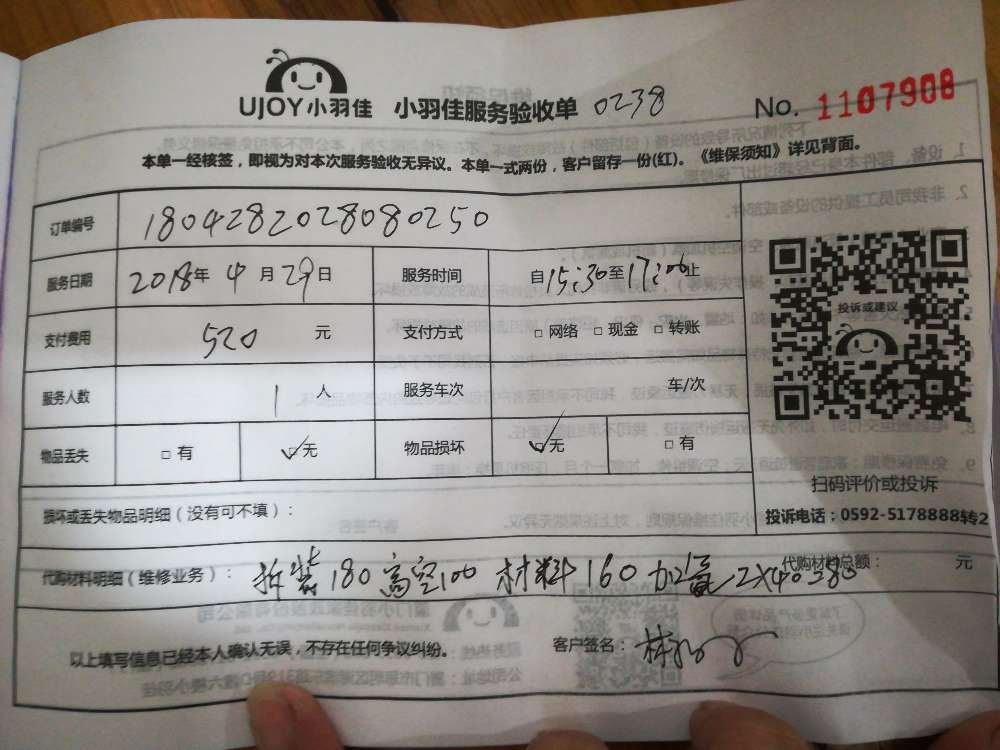 UJOY小羽佳 小羽佳服务验收单 0238 No. 1107908
本单一经核签，即视为对本次服务验收无异议。本单一式两份，客户留存一份(红)。《维保须知》详见背面。
订单编号 1804282028080250
服务日期 2018年 4 月 29日 服务时间 自15:30至17:00止
支付费用 520 元 支付方式 □ 网络 □ 现金 □ 转账
服务人数 1 人 服务车次 车/次
物品丢失 □ 有 ☑无 物品损坏 ☑无 □ 有
损坏或丢失物品明细（没有可不填）：
代购材料明细（维修业务）： 拆装180 高空100 材料160 加氟2×40=80 代购材料总额： 元
以上填写信息已经本人确认无误，不存在任何争议纠纷。 客户签名：
投诉或建议
扫码评价或投诉
投诉电话：0592-5178888转2